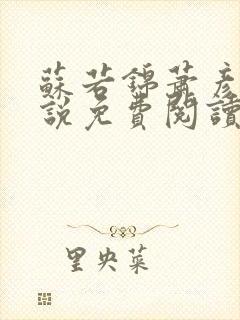 蘇若錦蕭彥
說免費閱讀
里央菜